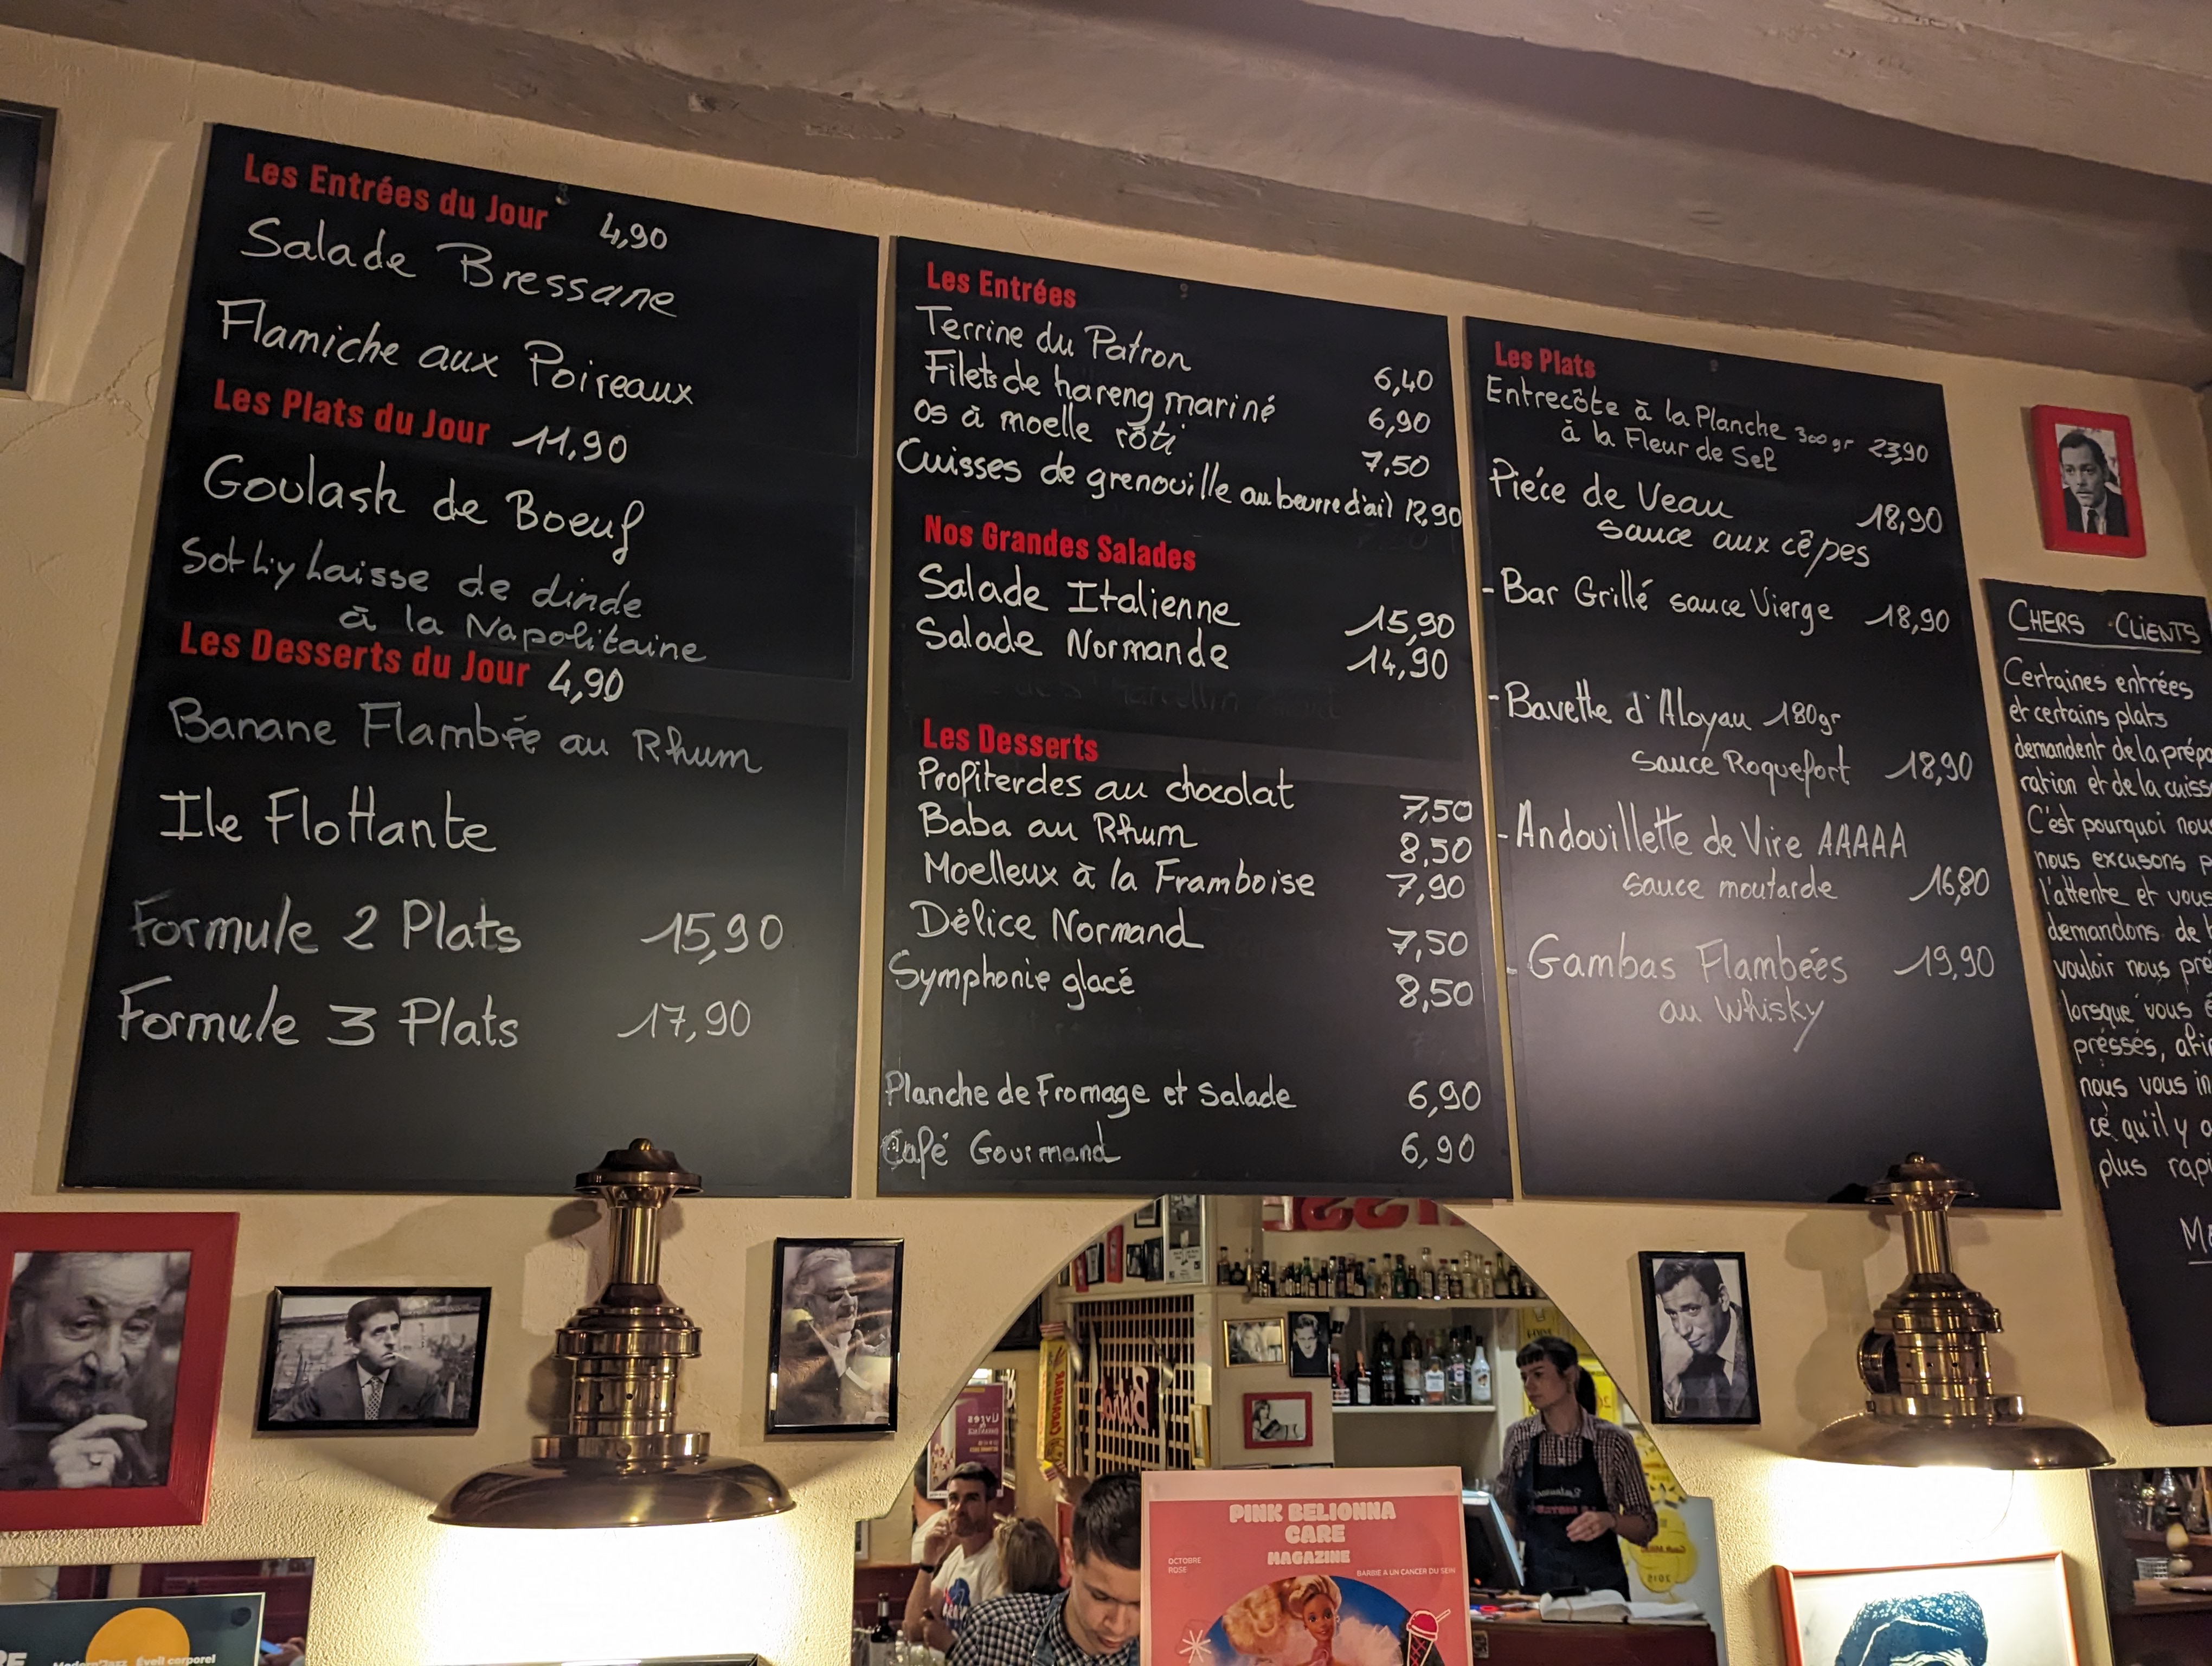 Les Entrées du Jour 4,90
Salade Bressane
Flamiche aux Poireaux
Les Plats du Jour 11,90
Goulash de Boeuf
Sot Ly Laisse de dinde
à la Napolitaine
Les Desserts du Jour 4,90
Banane Flambée au Rhum
Ile Flottante
Formule 2 Plats 15,90
Formule 3 Plats 17,90
Les Entrées
Terrine du Patron 6,40
Filets de hareng mariné 6,90
Os à moelle rôti 7,50
Cuisses de grenouille au beurre d'ail 12,90
Nos Grandes Salades
Salade Italienne 15,90
Salade Normande 14,90
Les Desserts
Profiterdes au chocolat 7,50
Baba au Rhum 8,50
Moelleux à la Framboise 7,90
Délice Normand 7,50
Symphonie glacé 8,50
Planche de Fromage et Salade 6,90
Café Gourmand 6,90
Les Plats
Entrecôte à la Planche 300gr 23,90
à la Fleur de Sel
Piéce de Veau 18,90
sauce aux cêpes
- Bar Grillé sauce Vierge 18,90
- Bavette d'Aloyau 180gr
sauce Roquefort 18,90
- Andouillette de Vire AAAAA
sauce moutarde 16,80
- Gambas Flambées 19,90
au Whisky
CHERS CLIENTS
Certaines entrées
et certains plats
demandent de la prépa
ration et de la cuiss
C'est pourquoi nous
nous excusons p
l'attente et vous
demandons de b
vouloir nous pré
lorsque vous ê
préssés, afin
nous vous in
ce qu'il y a
plus rapi
PINK BELIONNA
CARE
MAGAZINE
OCTOBRE
ROSE
BARBIE A UN CANCER DU SEIN
CARAMBAR
Bistrot
Livres
2015
RE
Modern'Jazz Éveil corporel